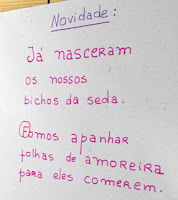 Novidade:
Já nasceram
os nossos
bichos da seda.
Fomos apanhar
folhas de amoreira
para eles comerem.